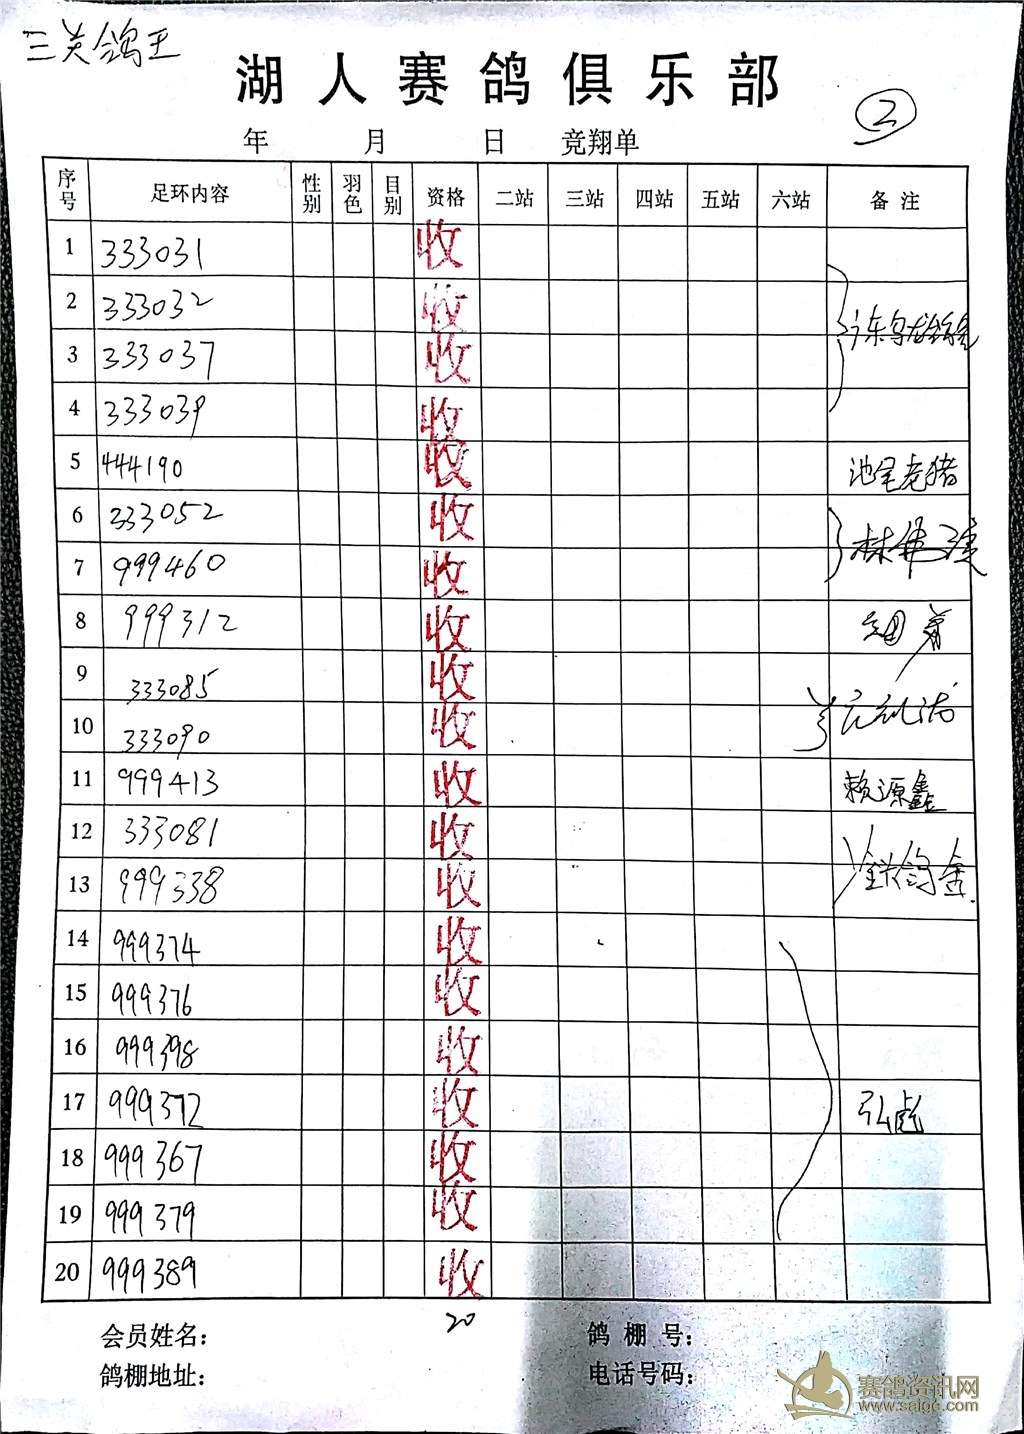 三关鸽王
湖人赛鸽俱乐部
②
年 月 日 竞翔单
序号 足环内容 性别 羽色 目别 资格 二站 三站 四站 五站 六站 备注
1 333031 收
2 333032 收
3 333037 收
4 333039 收
5 444190 收 池尾老猪
6 333052 收
7 999460 收
8 999312 收
9 333085 收
10 333090 收
11 999413 收 赖源鑫
12 333081 收
13 999338 收
14 999374 收
15 999376 收
16 999398 收
17 999372 收 弘彪
18 999367 收
19 999379 收
20 999389 收
20
会员姓名: 鸽棚号:
鸽棚地址: 电话号码:
赛鸽资讯网
www.saige.com